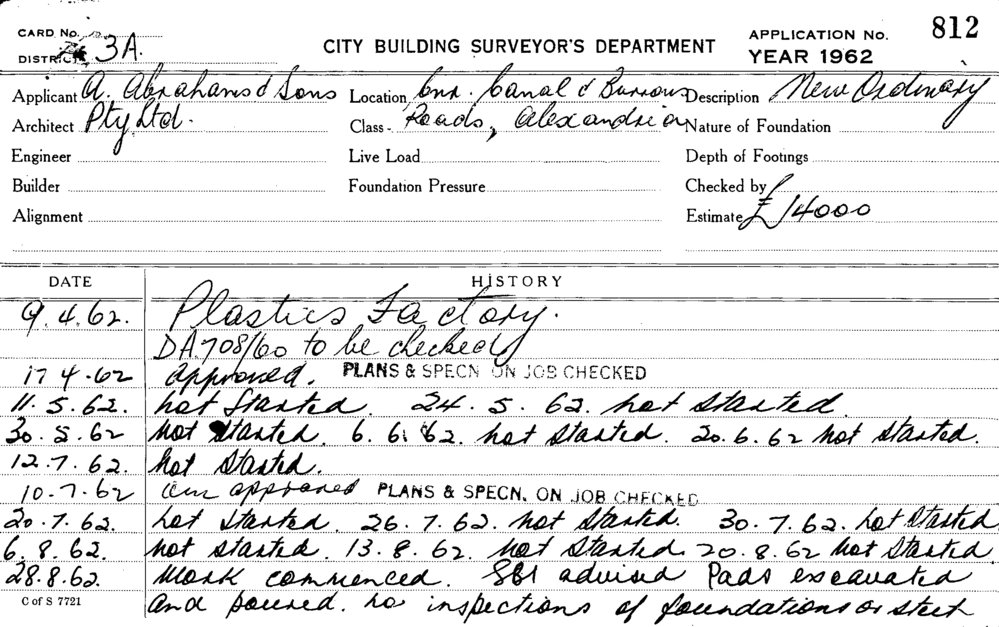 CARD No.
DISTRICT 3A.
CITY BUILDING SURVEYOR'S DEPARTMENT
APPLICATION No. 812
YEAR 1962
Applicant A. Abrahams & Sons Location Cnr. Canal & Burrows Description New Ordinary
Architect Pty Ltd. Class - Roads, Alexandria Nature of Foundation
Engineer Live Load Depth of Footings
Builder Foundation Pressure Checked by
Alignment Estimate £14000
DATE HISTORY
9.4.62. Plastics Factory.
DA.708/60 to be checked
17 4.62 approved. PLANS & SPECN ON JOB CHECKED
11.5.62. not started. 24.5.62. not started.
30.5.62 not started. 6.6.62. not started. 20.6.62 not started.
12.7.62. not started.
10.7.62 am approved PLANS & SPECN. ON JOB CHECKED
20.7.62. not started. 26.7.62. not started. 30.7.62. not started
6.8.62. not started. 13.8.62. not started. 20.8.62 not started
28.8.62. work commenced. SBI advised Pads excavated
C of S 7721 and poured. no inspections of foundations or steel